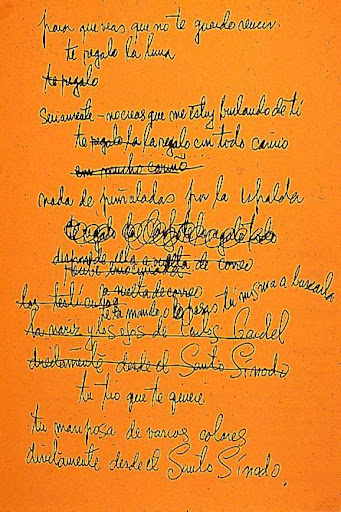 para que veas que no te guardo rencor
te regalo la luna
te regalo
seriamente - no creas que me estoy burlando de ti
te regalo la la regalo con todo cariño
con mucho cariño
nada de puñaladas por la espalda
disponde ella a vuelta de correo
a vuelta de correo
los testículos te la mando o la pasas tú misma a buscarla
la nariz y los ojos de Carlos Gardel
directamente desde el Santo Sínodo
tu tío que te quiere
tu mariposa de varios colores
directamente desde el Santo Sínodo.